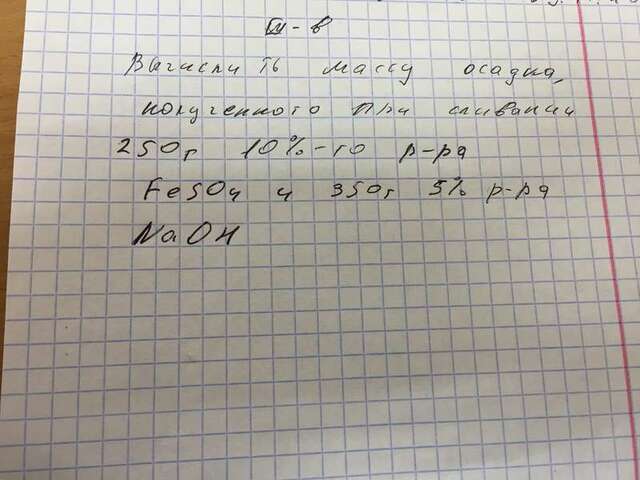 III-в
Вычислить массу осадка,
полученного при сливании
250г 10%-го р-ра
FeSO4 и 350г 5% р-ра
NaOH